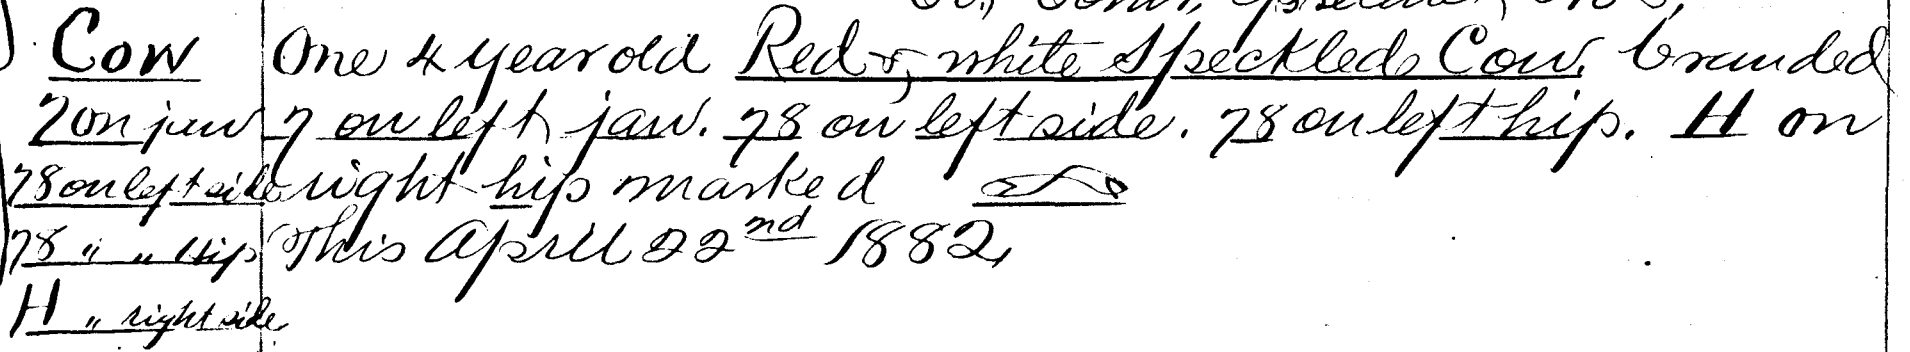 Cow
7 on jaw
78 on left side
78 " " Hip
H " right side
One 4 year old Red & white Speckled Cow, branded
7 on left jaw. 78 on left side. 78 on left hip. H on
right hip marked
This April 22nd 1882,